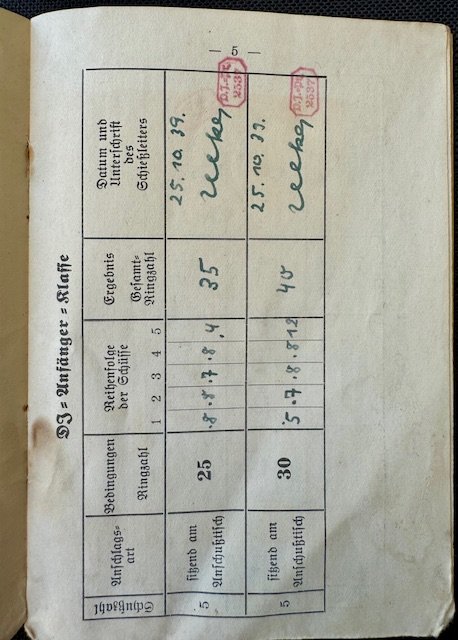 — 5 —
DJ = Anfänger = Klasse
Schußzahl
Anschlags-
art
Bedingungen
Ringzahl
Reihenfolge
der Schüsse
1 2 3 4 5
Ergebnis
Gesamt-
Ringzahl
Datum und
Unterschrift
des
Schießleiters
5
sitzend am
Anschußtisch
25
8 8 7 8 4
35
25. 10. 39.
D.J.-Sch.
2537
5
sitzend am
Anschußtisch
30
5 7 8 8 12
40
25. 10. 39.
D.J.-Sch.
2537